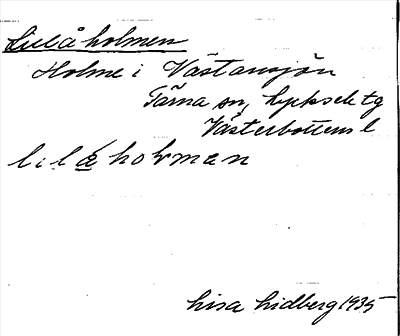 Lillåholmen
Holme i Västansjön
Tärna sn, Lycksele tg
Västerbottens l
lilåholman
Lisa Lidberg 1935